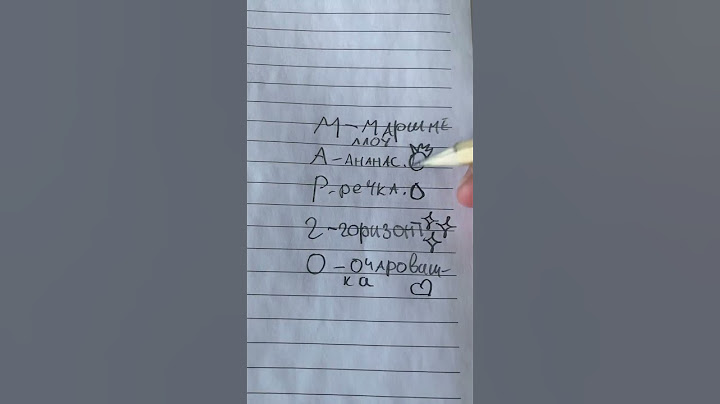 М - маршме
ллоу
А - Ананас.
Р - речка.
г - горизонт
О - очарова ш-
ка